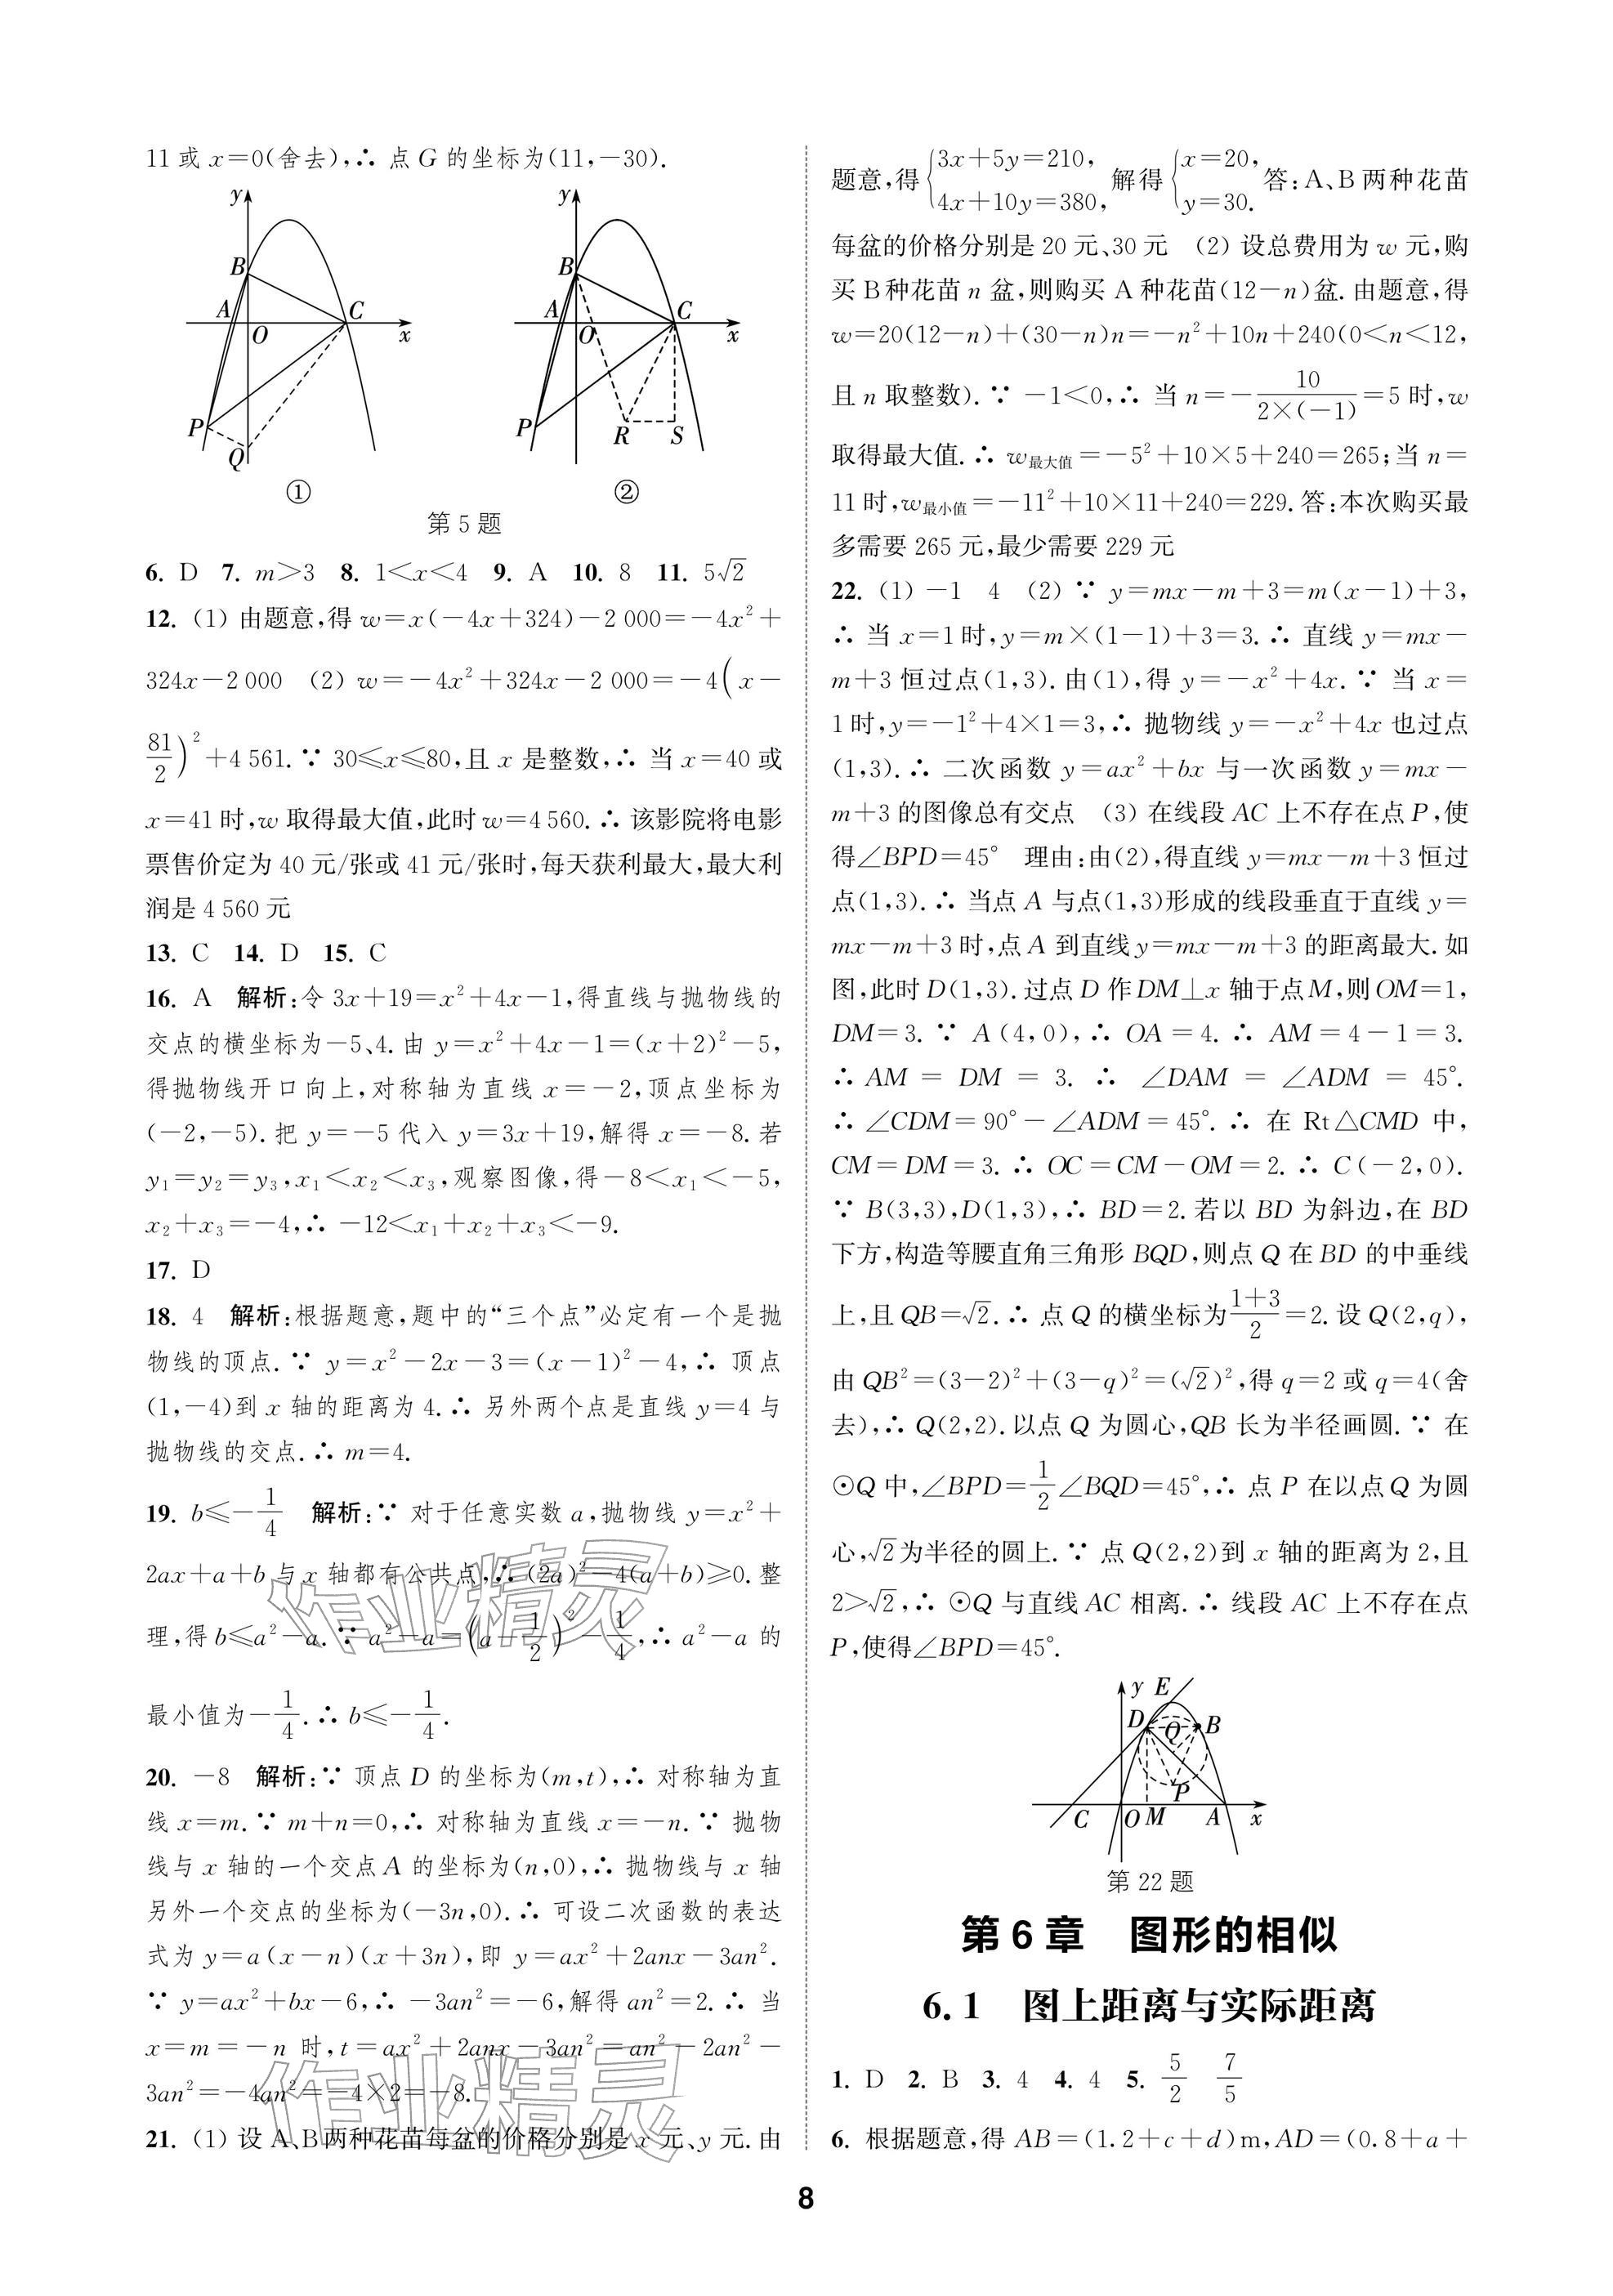 11或x=0(舍去),∴ 点G的坐标为(11,-30).
y
B
A
C
O
x
P
Q
①
y
B
A
C
O
x
P
R
S
②
第5题
6. D 7. m>3 8. 1<x<4 9. A 10. 8 11. 5√2
12. (1) 由题意,得w=x(-4x+324)-2 000=-4x²+
324x-2 000 (2) w=-4x²+324x-2 000=-4(x-
81/2)²+4 561.∵ 30≤x≤80,且x是整数,∴ 当x=40或
x=41时,w取得最大值,此时w=4 560.∴ 该影院将电影
票售价定为40元/张或41元/张时,每天获利最大,最大利
润是4 560元
13. C 14. D 15. C
16. A 解析:令3x+19=x²+4x-1,得直线与抛物线的
交点的横坐标为-5、4.由y=x²+4x-1=(x+2)²-5,
得抛物线开口向上,对称轴为直线x=-2,顶点坐标为
(-2,-5).把y=-5代入y=3x+19,解得x=-8.若
y₁=y₂=y₃,x₁<x₂<x₃,观察图像,得-8<x₁<-5,
x₂+x₃=-4,∴ -12<x₁+x₂+x₃<-9.
17. D
18. 4 解析:根据题意,题中的“三个点”必定有一个是抛
物线的顶点.∵ y=x²-2x-3=(x-1)²-4,∴ 顶点
(1,-4)到x轴的距离为4.∴ 另外两个点是直线y=4与
抛物线的交点.∴ m=4.
19. b≤-1/4 解析:∵ 对于任意实数a,抛物线y=x²+
2ax+a+b与x轴都有公共点,∴ (2a)²-4(a+b)≥0.整
理,得b≤a²-a.∵ a²-a=(a-1/2)²-1/4,∴ a²-a的
最小值为-1/4.∴ b≤-1/4.
20. -8 解析:∵ 顶点D的坐标为(m,t),∴ 对称轴为直
线x=m.∵ m+n=0,∴ 对称轴为直线x=-n.∵ 抛物
线与x轴的一个交点A的坐标为(n,0),∴ 抛物线与x轴
另外一个交点的坐标为(-3n,0).∴ 可设二次函数的表达
式为y=a(x-n)(x+3n),即y=ax²+2anx-3an².
∵ y=ax²+bx-6,∴ -3an²=-6,解得an²=2.∴ 当
x=m=-n时,t=ax²+2anx-3an²=an²-2an²-
3an²=-4an²=-4×2=-8.
21. (1) 设A、B两种花苗每盆的价格分别是x元、y元.由
题意,得{3x+5y=210, 4x+10y=380, 解得{x=20, y=30. 答:A、B两种花苗
每盆的价格分别是20元、30元 (2) 设总费用为w元,购
买B种花苗n盆,则购买A种花苗(12-n)盆.由题意,得
w=20(12-n)+(30-n)n=-n²+10n+240(0<n<12,
且n取整数).∵ -1<0,∴ 当n=-10/(2×(-1))=5时,w
取得最大值.∴ w最大值=-5²+10×5+240=265;当n=
11时,w最小值=-11²+10×11+240=229.答:本次购买最
多需要265元,最少需要229元
22. (1) -1 4 (2) ∵ y=mx-m+3=m(x-1)+3,
∴ 当x=1时,y=m×(1-1)+3=3.∴ 直线y=mx-
m+3恒过点(1,3).由(1),得y=-x²+4x.∵ 当x=
1时,y=-1²+4×1=3,∴ 抛物线y=-x²+4x也过点
(1,3).∴ 二次函数y=ax²+bx与一次函数y=mx-
m+3的图像总有交点 (3) 在线段AC上不存在点P,使
得∠BPD=45° 理由:由(2),得直线y=mx-m+3恒过
点(1,3).∴ 当点A与点(1,3)形成的线段垂直于直线y=
mx-m+3时,点A到直线y=mx-m+3的距离最大.如
图,此时D(1,3).过点D作DM⊥x轴于点M,则OM=1,
DM=3.∵ A(4,0),∴ OA=4.∴ AM=4-1=3.
∴ AM=DM=3.∴ ∠DAM=∠ADM=45°.
∴ ∠CDM=90°-∠ADM=45°.∴ 在Rt△CMD中,
CM=DM=3.∴ OC=CM-OM=2.∴ C(-2,0).
∵ B(3,3),D(1,3),∴ BD=2.若以BD为斜边,在BD
下方,构造等腰直角三角形BQD,则点Q在BD的中垂线
上,且QB=√2.∴ 点Q的横坐标为(1+3)/2=2.设Q(2,q),
由QB²=(3-2)²+(3-q)²=(√2)²,得q=2或q=4(舍
去),∴ Q(2,2).以点Q为圆心,QB长为半径画圆.∵ 在
⊙Q中,∠BPD=1/2∠BQD=45°,∴ 点P在以点Q为圆
心,√2为半径的圆上.∵ 点Q(2,2)到x轴的距离为2,且
2>√2,∴ ⊙Q与直线AC相离.∴ 线段AC上不存在点
P,使得∠BPD=45°.
y
E
D
Q
B
P
C
O
M
A
x
第22题
第6章 图形的相似
6.1 图上距离与实际距离
1. D 2. B 3. 4 4. 4 5. 5/2 7/5
6. 根据题意,得AB=(1.2+c+d)m,AD=(0.8+a+
作业精灵
作业精灵
8